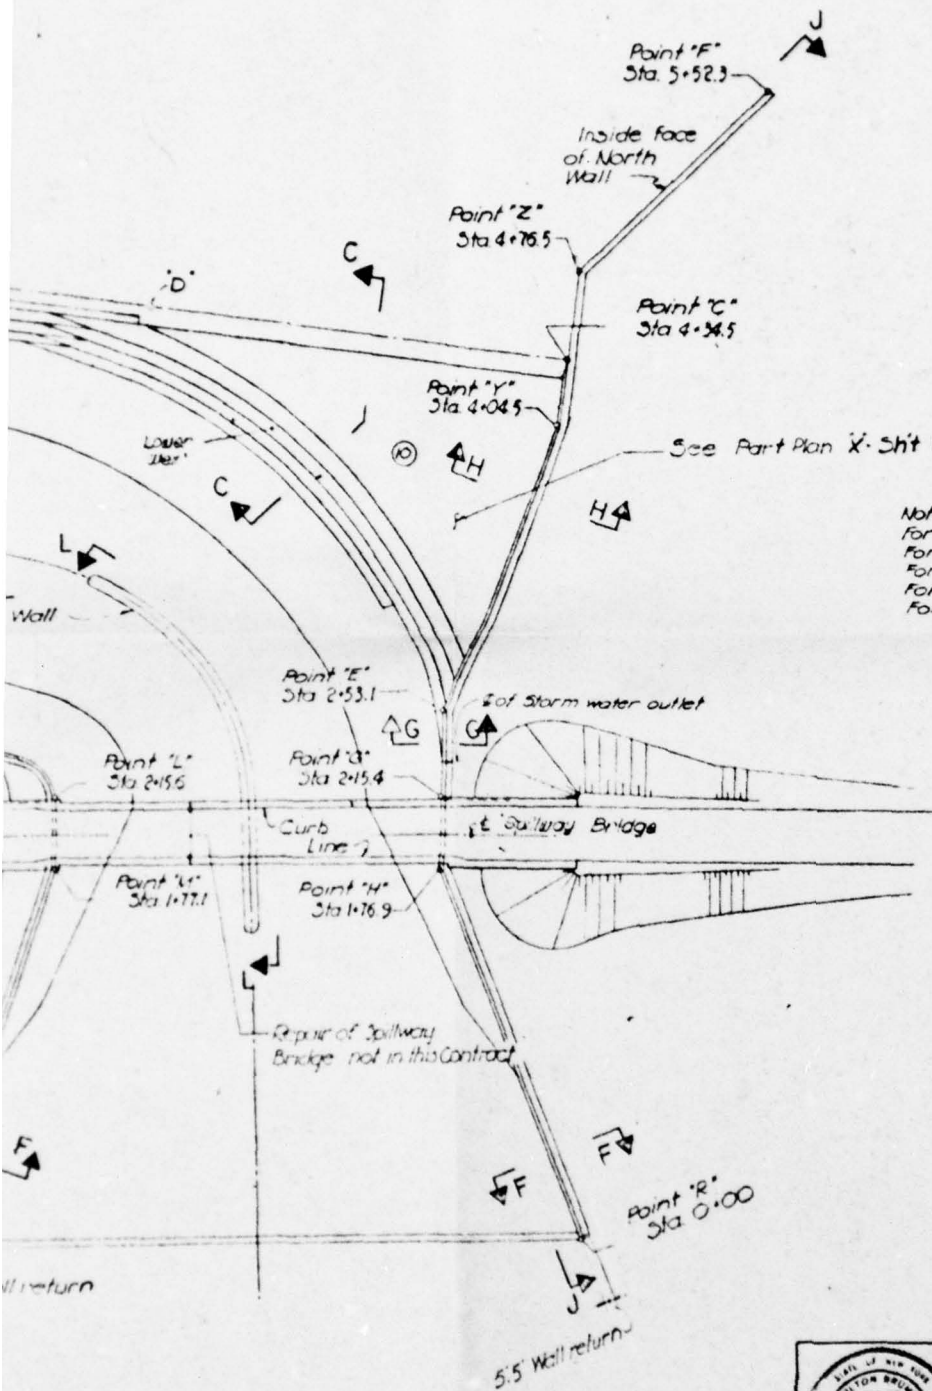 J
Point "F"
Sta. 5+52.3
Inside face
of North
Wall
Point "Z"
Sta 4+76.5
C
"D"
Point "C"
Sta 4+34.5
Point "Y"
Sta. 4+04.5
Lower
10
H
See Part Plan "X"- Sh't
C
H
L
Wall
Point "E"
Sta 2+53.1
℄ of Storm water outlet
G
G
Point "L"
Sta 2+15.6
Point "G"
Sta. 2+15.4
Curb
Line
℄ Spillway Bridge
Point "M"
Sta. 1+77.1
Point "H"
Sta 1+76.9
L
Repair of Spillway
Bridge not in this Contract
F
F
F
Point "R"
Sta. 0+00
return
J
5.5' Wall return